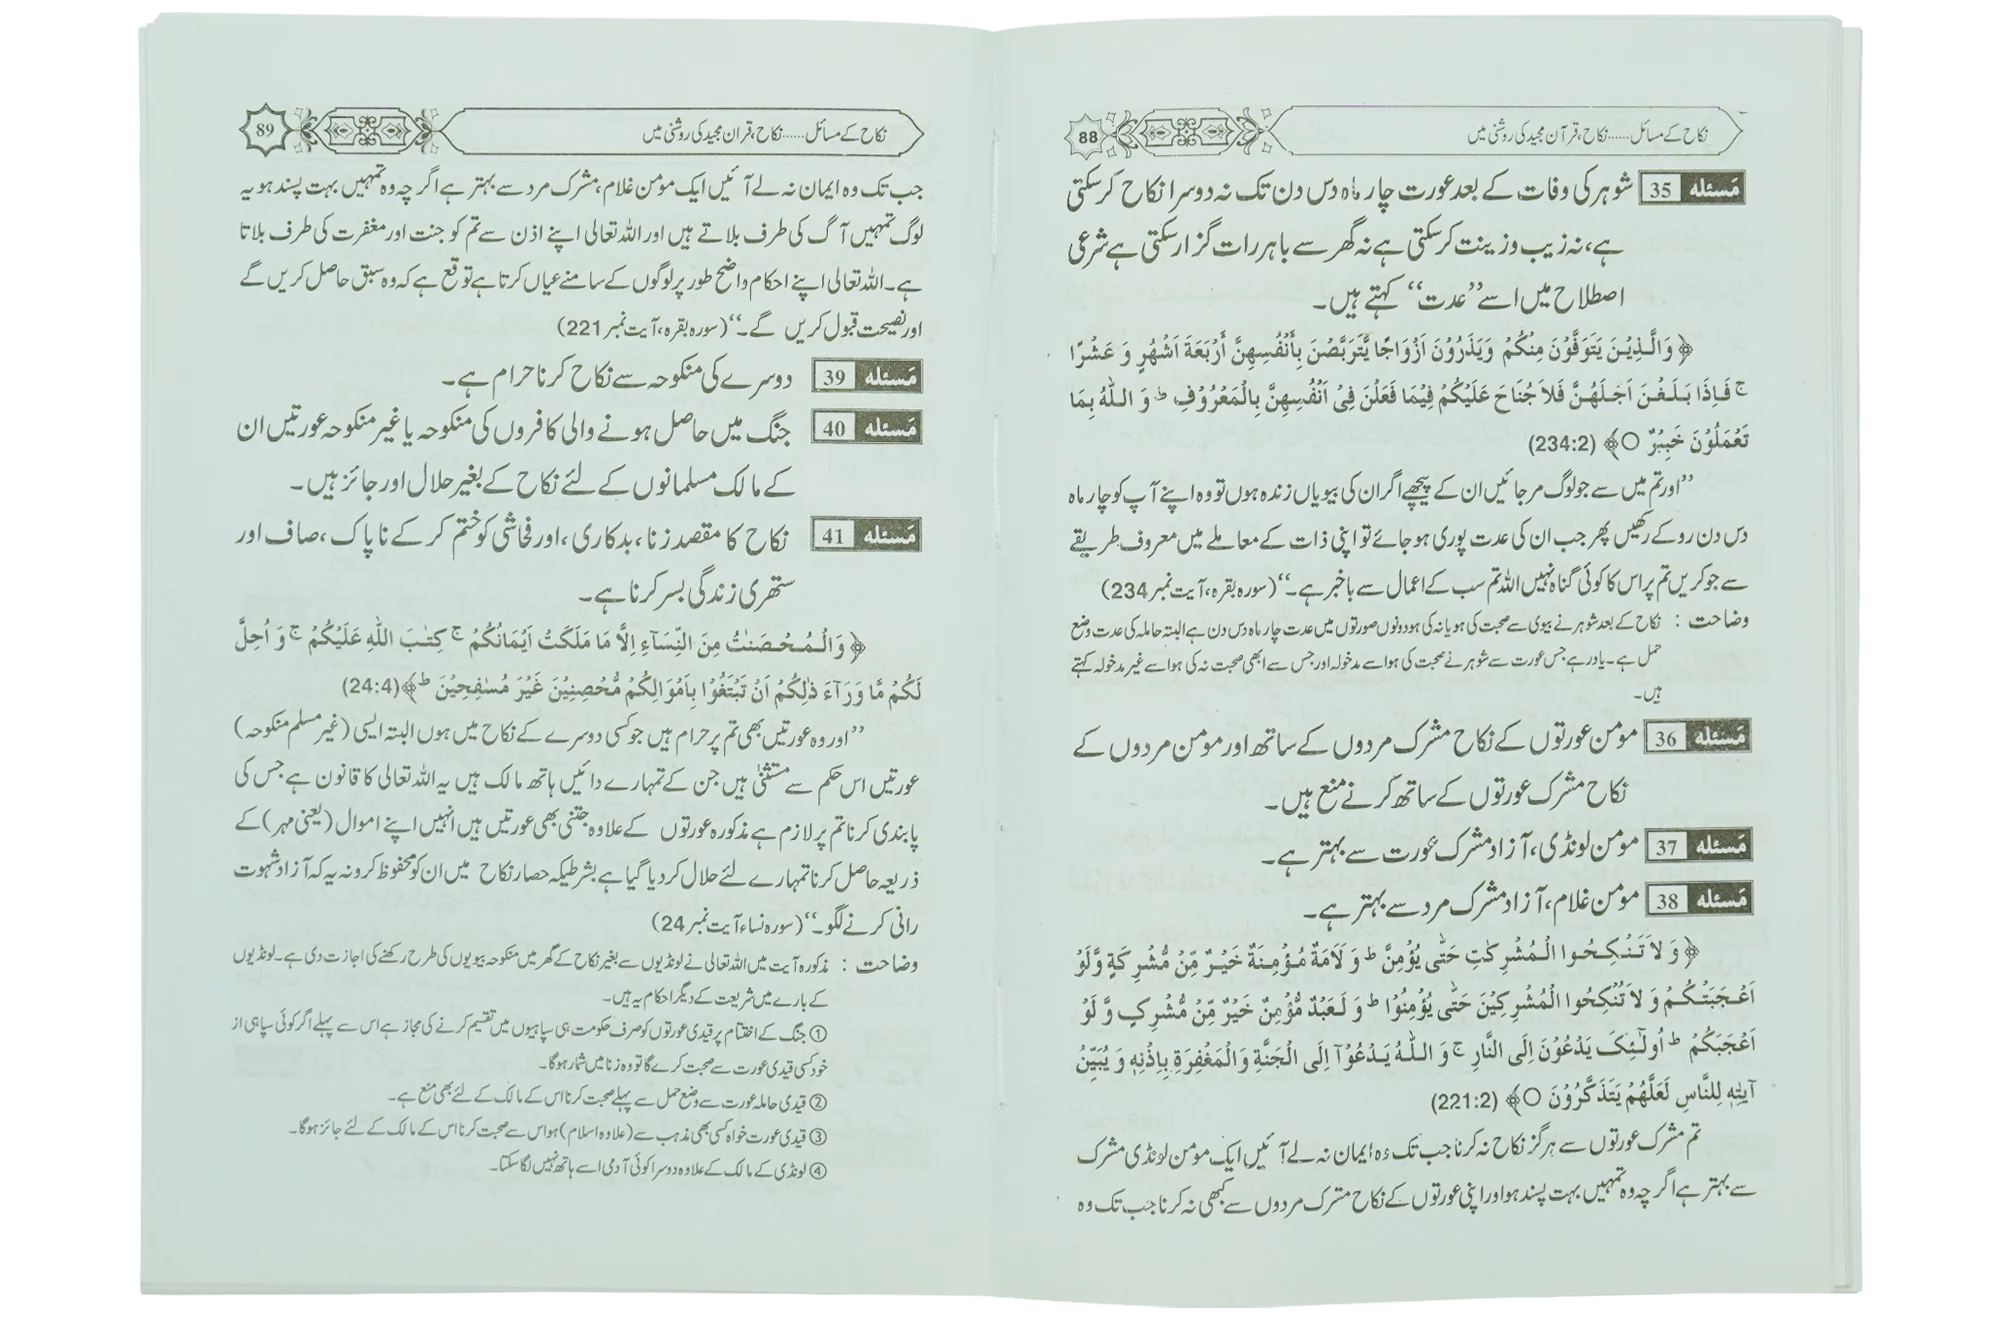 نکاح کے مسائل ...... نکاح، قرآن مجید کی روشنی میں
88
مَسئله 35 شوہر کی وفات کے بعد عورت چار ماہ دس دن تک نہ دوسرا نکاح کر سکتی
ہے، نہ زیب و زینت کر سکتی ہے نہ گھر سے باہر رات گزار سکتی ہے شرعی
اصطلاح میں اسے ’’عدت‘‘ کہتے ہیں۔
﴿ وَالَّذِيْنَ يَتَوَفَّوْنَ مِنْكُمْ وَيَذَرُوْنَ اَزْوَاجًا يَّتَرَبَّصْنَ بِأَنْفُسِهِنَّ أَرْبَعَةَ اَشْهُرٍ وَ عَشْرًا
ج فَاِذَا بَلَغْنَ اَجَلَهُنَّ فَلاَ جُنَاحَ عَلَيْكُمْ فِيْمَا فَعَلْنَ فِىْ اَنْفُسِهِنَّ بِالْمَعْرُوْفِ ط وَ اللّٰهُ بِمَا
تَعْمَلُوْنَ خَبِيْرٌ ○ ﴾ (234:2)
’’اور تم میں سے جو لوگ مر جائیں ان کے پیچھے اگر ان کی بیویاں زندہ ہوں تو وہ اپنے آپ کو چار ماہ
دس دن روکے رکھیں پھر جب ان کی عدت پوری ہو جائے تو اپنی ذات کے معاملے میں معروف طریقے
سے جو کریں تم پر اس کا کوئی گناہ نہیں اللہ تم سب کے اعمال سے باخبر ہے۔‘‘ (سورہ بقرہ، آیت نمبر 234)
وضاحت : نکاح کے بعد شوہر نے بیوی سے صحبت کی ہو یا نہ کی ہو دونوں صورتوں میں عدت چار ماہ دس دن ہے البتہ حاملہ کی عدت وضع
حمل ہے۔ یاد رہے جس عورت سے شوہر نے صحبت کی ہو اسے مدخولہ اور جس سے ابھی صحبت نہ کی ہو اسے غیر مدخولہ کہتے
ہیں۔
مَسئله 36 مومن عورتوں کے نکاح مشرک مردوں کے ساتھ اور مومن مردوں کے
نکاح مشرک عورتوں کے ساتھ کرنے منع ہیں۔
مَسئله 37 مومن لونڈی، آزاد مشرک عورت سے بہتر ہے۔
مَسئله 38 مومن غلام، آزاد مشرک مرد سے بہتر ہے۔
﴿ وَ لاَ تَنْكِحُوا الْمُشْرِكٰتِ حَتّٰى يُؤْمِنَّ ط وَ لَاَمَةٌ مُؤْمِنَةٌ خَيْرٌ مِّنْ مُّشْرِكَةٍ وَّلَوْ
اَعْجَبَتْكُمْ وَ لاَ تُنْكِحُوا الْمُشْرِكِيْنَ حَتّٰى يُؤْمِنُوْا ط وَ لَعَبْدٌ مُّؤْمِنٌ خَيْرٌ مِّنْ مُّشْرِكٍ وَّ لَوْ
اَعْجَبَكُمْ ط اُولٰٓئِكَ يَدْعُوْنَ اِلَى النَّارِ ج وَ اللّٰهُ يَدْعُوْآ اِلَى الْجَنَّةِ وَالْمَغْفِرَةِ بِاِذْنِهٖ وَ يُبَيِّنُ
آيٰتِهٖ لِلنَّاسِ لَعَلَّهُمْ يَتَذَكَّرُوْنَ ○ ﴾ (221:2)
تم مشرک عورتوں سے ہرگز نکاح نہ کرنا جب تک وہ ایمان نہ لے آئیں ایک مومن لونڈی مشرک
سے بہتر ہے اگرچہ وہ تمہیں بہت پسند ہو اور اپنی عورتوں کے نکاح مشرک مردوں سے کبھی نہ کرنا جب تک وہ
نکاح کے مسائل ...... نکاح، قرآن مجید کی روشنی میں
89
جب تک وہ ایمان نہ لے آئیں ایک مومن غلام، مشرک مرد سے بہتر ہے اگرچہ وہ تمہیں بہت پسند ہو یہ
لوگ تمہیں آگ کی طرف بلاتے ہیں اور اللہ تعالیٰ اپنے اذن سے تم کو جنت اور مغفرت کی طرف بلاتا
ہے۔ اللہ تعالیٰ اپنے احکام واضح طور پر لوگوں کے سامنے عیاں کرتا ہے توقع ہے کہ وہ سبق حاصل کریں گے
اور نصیحت قبول کریں گے۔‘‘ (سورہ بقرہ، آیت نمبر 221)
مَسئله 39 دوسرے کی منکوحہ سے نکاح کرنا حرام ہے۔
مَسئله 40 جنگ میں حاصل ہونے والی کافروں کی منکوحہ یا غیر منکوحہ عورتیں ان
کے مالک مسلمانوں کے لئے نکاح کے بغیر حلال اور جائز ہیں۔
مَسئله 41 نکاح کا مقصد زنا، بدکاری، اور فحاشی کو ختم کر کے نا پاک، صاف اور
ستھری زندگی بسر کرنا ہے۔
﴿ وَالْمُحْصَنٰتُ مِنَ النِّسَآءِ اِلَّا مَا مَلَكَتْ اَيْمَانُكُمْ ج كِتٰبَ اللّٰهِ عَلَيْكُمْ ج وَ اُحِلَّ
لَكُمْ مَّا وَرَآءَ ذٰلِكُمْ اَنْ تَبْتَغُوْا بِاَمْوَالِكُمْ مُّحْصِنِيْنَ غَيْرَ مُسٰفِحِيْنَ ط ﴾(24:4)
’’اور وہ عورتیں بھی تم پر حرام ہیں جو کسی دوسرے کے نکاح میں ہوں البتہ ایسی (غیر مسلم منکوحہ)
عورتیں اس حکم سے مستثنیٰ ہیں جن کے تمہارے دائیں ہاتھ مالک ہیں یہ اللہ تعالیٰ کا قانون ہے جس کی
پابندی کرنا تم پر لازم ہے مذکورہ عورتوں کے علاوہ جتنی بھی عورتیں ہیں انہیں اپنے اموال (یعنی مہر) کے
ذریعہ حاصل کرنا تمہارے لئے حلال کر دیا گیا ہے بشرطیکہ حصار نکاح میں ان کو محفوظ کرو نہ یہ کہ آزاد شہوت
رانی کرنے لگو۔‘‘ (سورہ نساء آیت نمبر 24)
وضاحت : مذکورہ آیت میں اللہ تعالیٰ نے لونڈیوں سے بغیر نکاح کے گھر میں منکوحہ بیویوں کی طرح رکھنے کی اجازت دی ہے۔ لونڈیوں
کے بارے میں شریعت کے دیگر احکام یہ ہیں۔
① جنگ کے اختتام پر قیدی عورتوں کو صرف حکومت ہی سپاہیوں میں تقسیم کرنے کی مجاز ہے اس سے پہلے اگر کوئی سپاہی از
خود کسی قیدی عورت سے صحبت کرے گا تو وہ زنا میں شمار ہوگا۔
② قیدی حاملہ عورت سے وضع حمل سے پہلے صحبت کرنا اس کے مالک کے لئے بھی منع ہے۔
③ قیدی عورت خواہ کسی بھی مذہب سے (علاوہ اسلام) ہو اس سے صحبت کرنا اس کے مالک کے لئے جائز ہوگا۔
④ لونڈی کے مالک کے علاوہ دوسرا کوئی آدمی اسے ہاتھ نہیں لگا سکتا۔